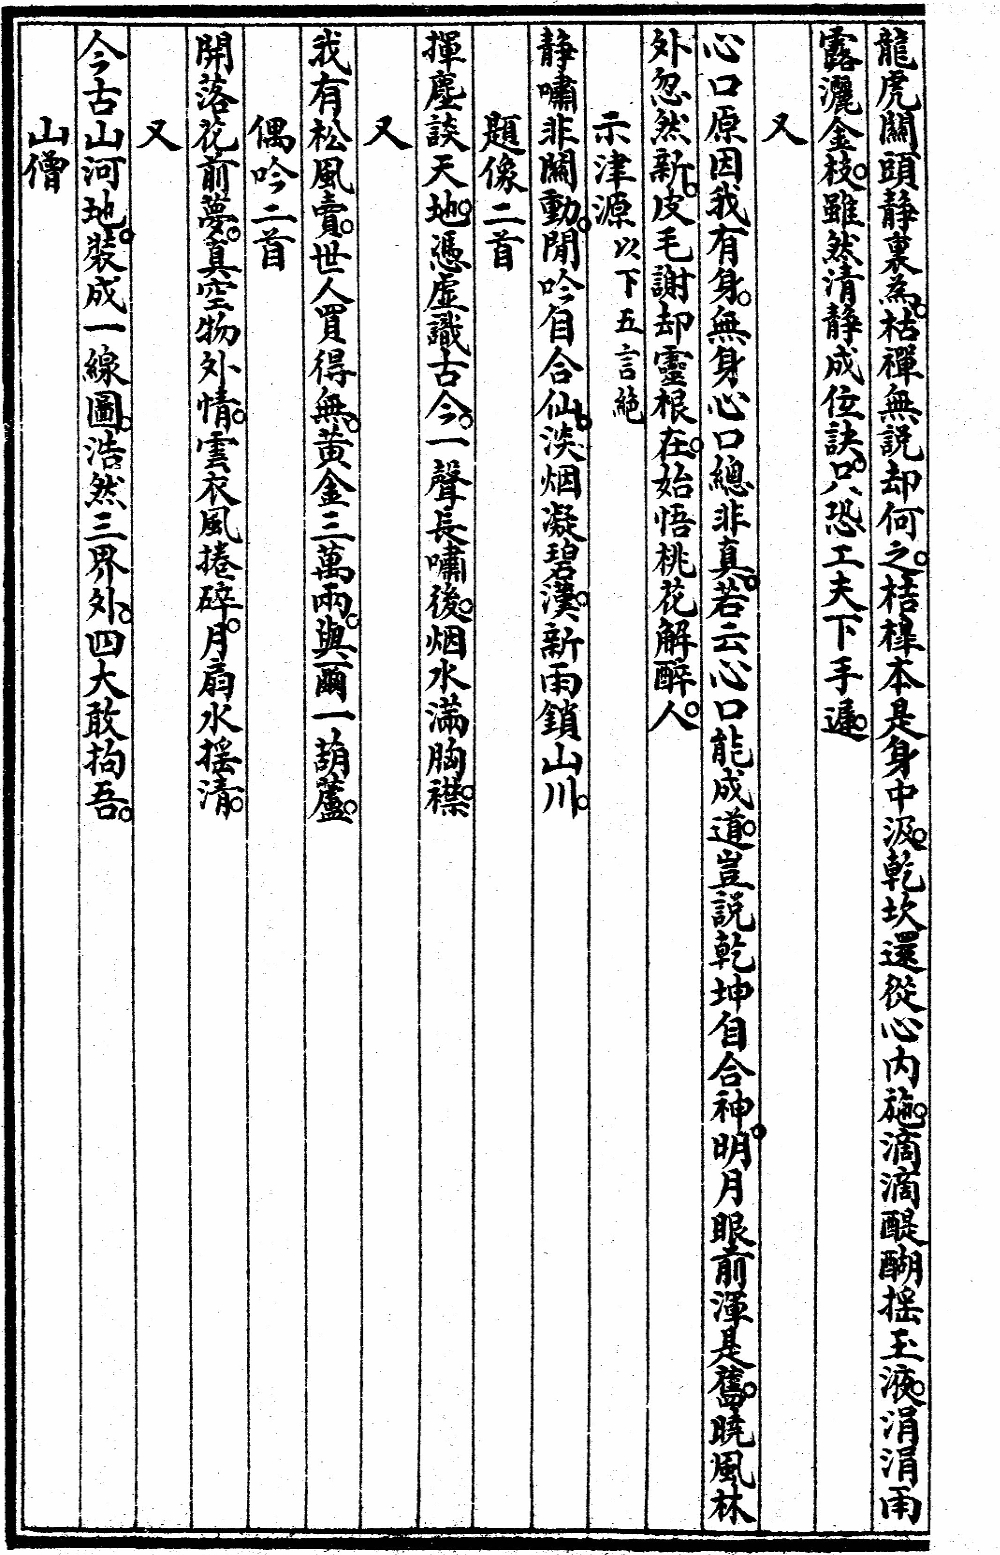 龍虎關頭靜裏為枯禪無説却何之桔槹本是身中汲乾坎還從心内施滴滴醍醐摇玉液涓涓雨
露灑金枝雖然清靜成位訣只恐工夫下手遲
又
心口原因我有身無身心口總非真若云心口能成道豈説乾坤自合神明月眼前渾是舊曉風林
外忽然新皮毛謝却靈根在始悟桃花解醉人
示津源以下五言絶
静嘯非關動閒吟自合仙淡烟凝碧漢新雨鎖山川
題像二首
揮麈談天地憑虚識古今一聲長嘯後烟水滿胸襟
又
我有松風賣世人買得無黄金三萬兩與爾一葫蘆
偶吟二首
開落花前夢真空物外情雲衣風捲碎月扇水摇清
又
今古山河地裝成一線圖浩然三界外四大敢拘吾
山僧